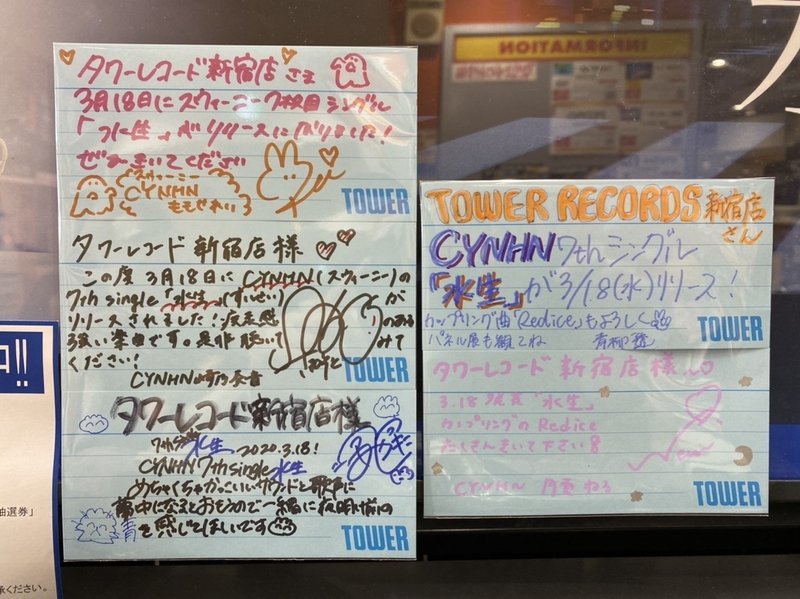 タワーレコード新宿店さま
3月18日にスウィーニー7枚目シングル
「水生」がリリースになりました!
ぜひきいてください
スウィーニー
CYNHN
ももせれいる
TOWER
タワーレコード新宿店様
この度3月18日にCYNHN(スウィーニー)の
7th single「水生」(すいせい)が
リリースされました!疾走感のある
強い楽曲です。是非聴いてみて
ください!
CYNHN
TOWER
タワーレコード新宿店様
水生 2020.3.18!
CYNHN 7th single 水生
めちゃくちゃかっこいいサウンドと歌声に
夢中になるとおもうので一緒に夜明け前の
青を感じてほしいです
TOWER
TOWER RECORDS 新宿店
さん
CYNHN 7thシングル
「水生」が3/18(水)リリース!
カップリング曲「Redice」もよろしく
パネル展も観てね 青柳透
TOWER
タワーレコード新宿店様
3.18発売"水生"
カップリングのRedice
たくさんきいて下さい
CYNHN 月雲ねる
TOWER
INFORMATION
抽選券」
承ください。